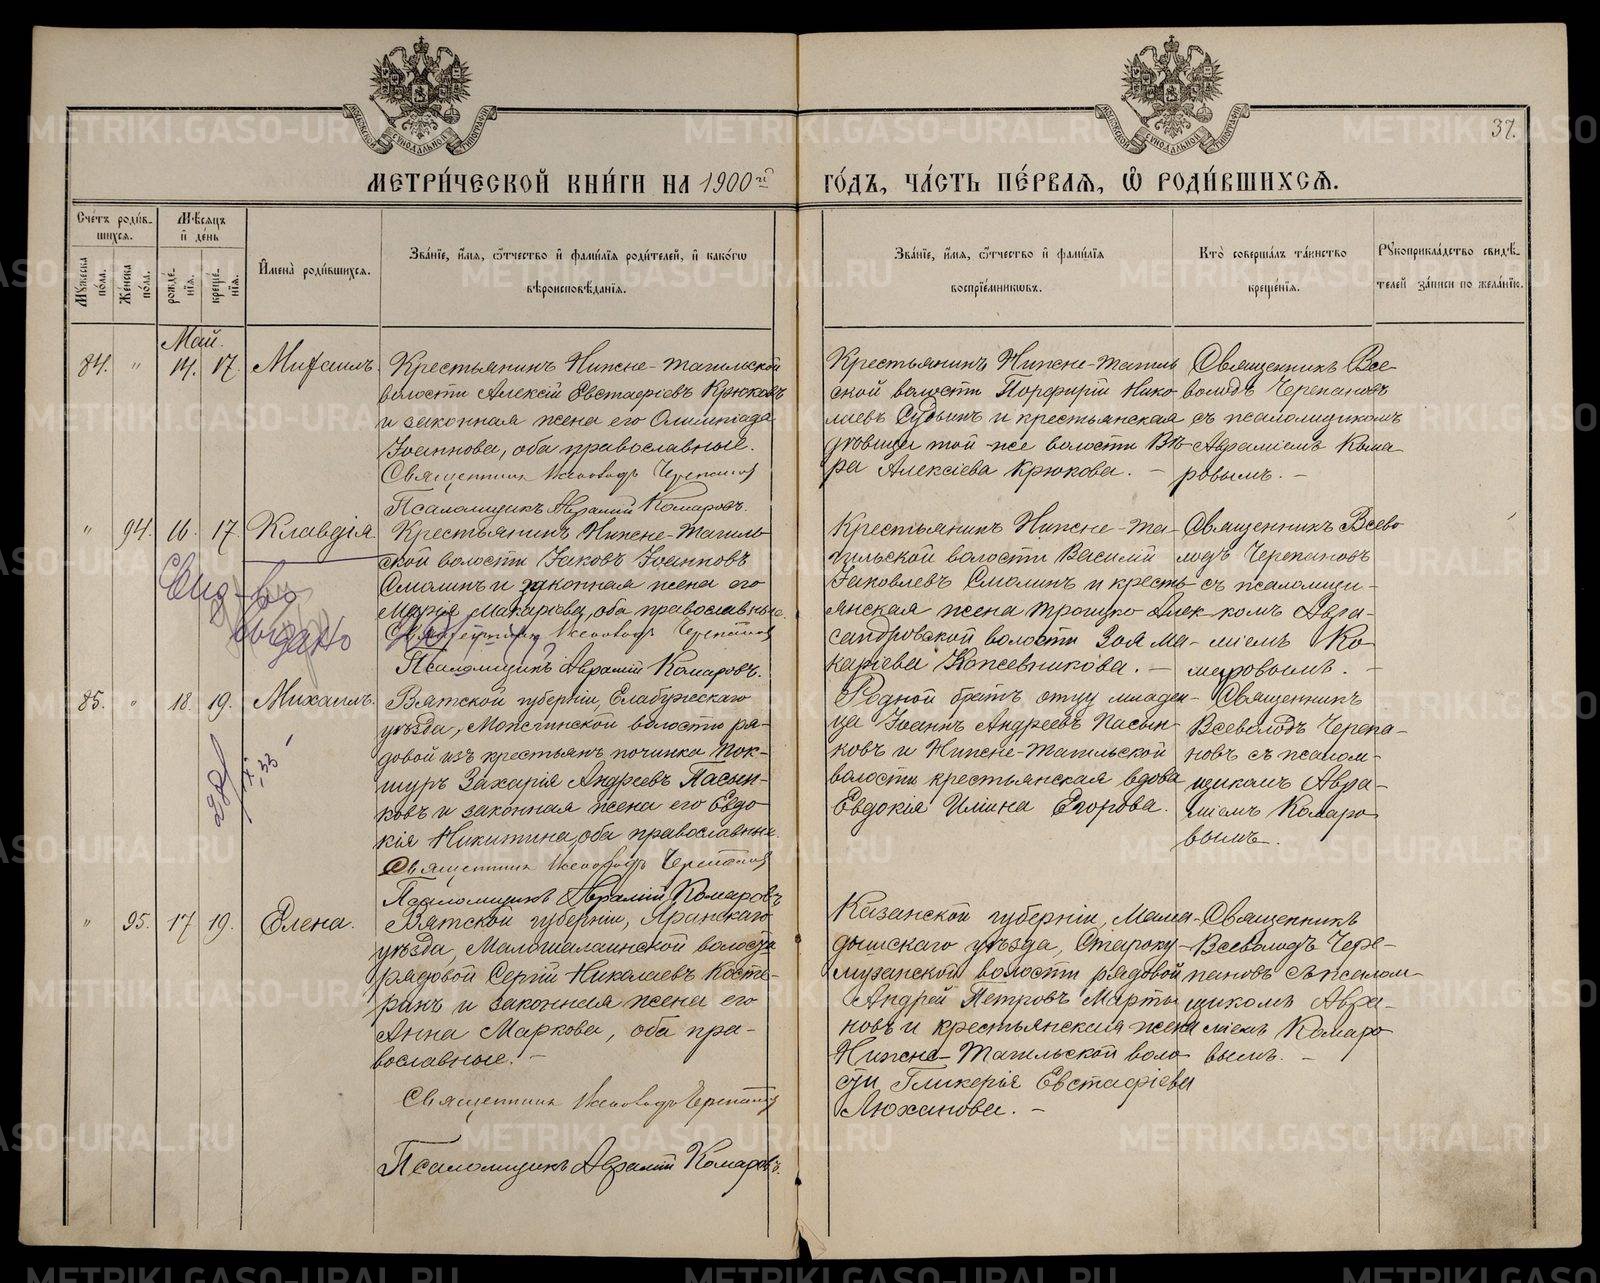 37.
МЕТРИ́ЧЕСКОЙ КНИ́ГИ НА 1900й
ГО́ДЪ, ЧА́СТЬ ПЕ́РВАѦ, Ѿ РОДИ́ВШИХСѦ.
Сче́тъ роди́в-
шихсѧ.
Мѣ́сѧцъ
и҆ де́нь
Мꙋ́жеска
по́ла.
Же́нска
по́ла.
рожде́-
нїѧ.
креще́-
нїѧ.
И҆мена̀ роди́вшихсѧ.
Зва́нїе, и҆́мѧ, ѻ҆́тчество и҆ фами́лїѧ роди́телей, и҆ како́гѡ
вѣроисповѣ́данїѧ.
Зва́нїе, и҆́мѧ, ѻ҆́тчество и҆ фами́лїѧ
воспрїе́мникѡвъ.
Кто̀ соверша́лъ та́инство
креще́нїѧ.
Рꙋкоприкла́дство свидѣ́-
телей за́писи по жела́нїю.
Май.
84. " 14. 17. Михаилъ.
Крестьянинъ Нижне-Тагильской
волости Алексій Евстафіевъ Крюковъ
и законная жена его Олимпіада
Іоаннова, оба православные.
Священникъ Всеволодъ Черепановъ
Псаломщикъ Аврамій Комаровъ.
Крестьянинъ Нижне-Тагиль
ской волости Порфирій Нико
лаевъ Судьинъ и крестьянская
дѣвица той-же волости Вѣ-
ра Алексіева Крюкова. —
Священникъ Все-
володъ Черепановъ
съ псаломщикомъ
Авраміемъ Кома
ровымъ. —
" 94. 16. 17. Клавдія.
Крестьянинъ Нижне-Тагиль
ской волости Іаковъ Іоанновъ
Смолинъ и законная жена его
Марія Макаріева, оба православные.
Священникъ Всеволодъ Черепановъ
Псаломщикъ Аврамій Комаровъ.
Крестьянинъ Нижне-Та-
гильской волости Василій
Іаковлевъ Смолинъ и кресть-
янская жена Троицко Алек-
сандровской волости Зоя Ма-
каріева Кожевникова. —
Священникъ Всево
лодъ Черепановъ
съ псаломщи-
комъ Авра-
міемъ Ко-
маровымъ. —
Свид-во
выдано
85. " 18. 19. Михаилъ.
Вятской губерніи, Елабужскаго
уѣзда, Можгинской волости ря-
довой изъ крестьянъ починка Ток-
шуръ Захарія Андреевъ Пасын-
ковъ и законная жена его Евдо
кія Никитина, оба православные.
Священникъ Всеволодъ Черепановъ
Псаломщикъ Аврамій Комаровъ
Родной братъ отцу младен-
ца Іоаннъ Андреевъ Пасын-
ковъ и Нижне-Тагильской
волости крестьянская вдова
Евдокія Ильина Егорова.
Священникъ
Всеволодъ Черепа-
новъ съ псалом-
щикомъ Авра-
міемъ Комаро
вымъ.
" 95. 17 19. Елена.
Вятской губерніи, Яранскаго
уѣзда, Малошалаинской волости
рядовой Сергій Николаевъ Косте-
ринъ и законная жена его
Анна Маркова, оба пра-
вославные. —
Священникъ Всеволодъ Черепановъ
Псаломщикъ Аврамій Комаровъ.
Казанской губерніи, Мама-
дышскаго уѣзда, Староку-
музанской волости рядовой
Андрей Петровъ Марты
новъ и крестьянская жена
Нижне-Тагильской воло
сти Гликерія Евстафіева
Люханова. —
Священникъ
Всеволодъ Чере-
пановъ съ псалом-
щикомъ Авра-
міемъ Комаро
вымъ. —
METRIKI.GASO-URAL.RU